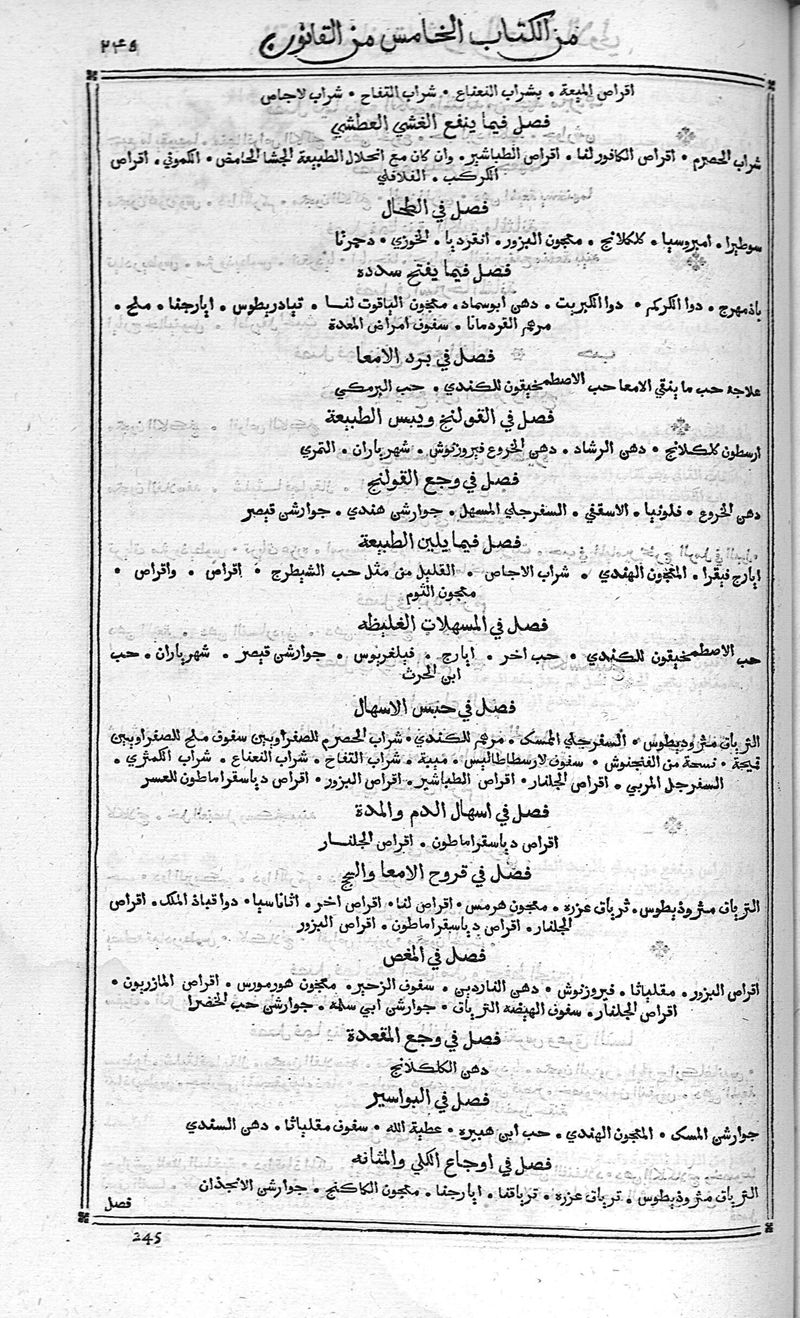 ٢٤٥ من الكتاب الخامس من القانون
اقراص الميعة • بشراب النعناع • شراب التفاح • شراب لاجاص
فصل فيما ينفع الغشي العطشي
شراب الحصرم • اقراص الكافور لفا • اقراص الطباشير • وان كان مع انحلال الطبيعة الجشا الحامض • الكموني • اقراص
الكركب • الفلافلي
فصل في الطحال
سوطيرا • امبروسيا • كلكلانج • معجون البزور • انقرديا • الخوزي • دحمرثا
فصل فيما يفتح سدده
باذمهرج • دوا الكركم • دوا الكبريت • دهن ابوسماد • معجون الياقوت لنا • تيادريطوس • ايارجفا • ملح •
مرهم القردمانا • سفوف امراض المعدة
فصل في برد الامعا
علاجه حب ما ينقي الامعا حب الاصطمخيقون للكندي • حب البرمكي
فصل في القولنج ويبس الطبيعة
ارسطون كلكلانج • دهن الرشاد • دهن الخروع فيروزنوش • شهرياران • التمري
فصل في وجع القولنج
دهن الخروع • فلونيا • الاسقفي • السفرجلي المسهل • جوارشن هندي • جوارشن قيصر
فصل فيما يلين الطبيعة
ايارج فيقرا • المعجون الهندي • شراب الاجاص • القليل من مثل حب الشيطرج • اقراص • واقراص •
معجون الثوم
فصل في المسهلات الغليظه
حب الاصطمخيقون للكندي • حب اخر • ايارج • فيلغريوس • جوارشن قيصر • شهرياران • حب
ابن الحرث
فصل في حبس الاسهال
الترياق مثروديطوس • السفرجلي الممسك • مرهم للكندي • شراب الحصرم للصفراويين سفوف ملح للصفراويين
قميحة • نسخة من الفنجنوش • سفوف لارسطاطاليس • ميبة • شراب التفاح • شراب النعناع • شراب الكمثري •
السفرجل المربي • اقراص الجلنار • اقراص الطباشير • اقراص البزور • اقراص دياسقراماطون للعسر
فصل في اسهال الدم والمدة
اقراص دياسقراماطون • اقراص الجلنار
فصل في قروح الامعا والسحج
الترياق مثروذيطوس • ترياق عزره • معجون هرمس • اقراص لفا • اقراص اخر • اثاناسيا • دوا قباذ الملك • اقراص
الجلنار • اقراص دياسقراماطون • اقراص البزور
فصل في المغص
اقراص البزور • مقلياثا • فيروزنوش • دهن الناردين • سفوف الزحير • معجون هورمورس • اقراص المازريون •
اقراص الجلنار • سفوف الهيضه الترياق • جوارشن ابي سلمه • جوارشن حب الخضرا
فصل في وجع المقعدة
دهن الكلكلانج
فصل في البواسير
جوارشن المسك • المعجون الهندي • حب ابن هبيره • عطية الله • سفوف مقلياثا • دهن السندي
فصل في اوجاع الكلي والمثانه
الترياق مثروذيطوس • ترياق عزره • ترياقنا • ايارجفا • معجون الكاكنج • جوارشن الانجذان
فصل
245